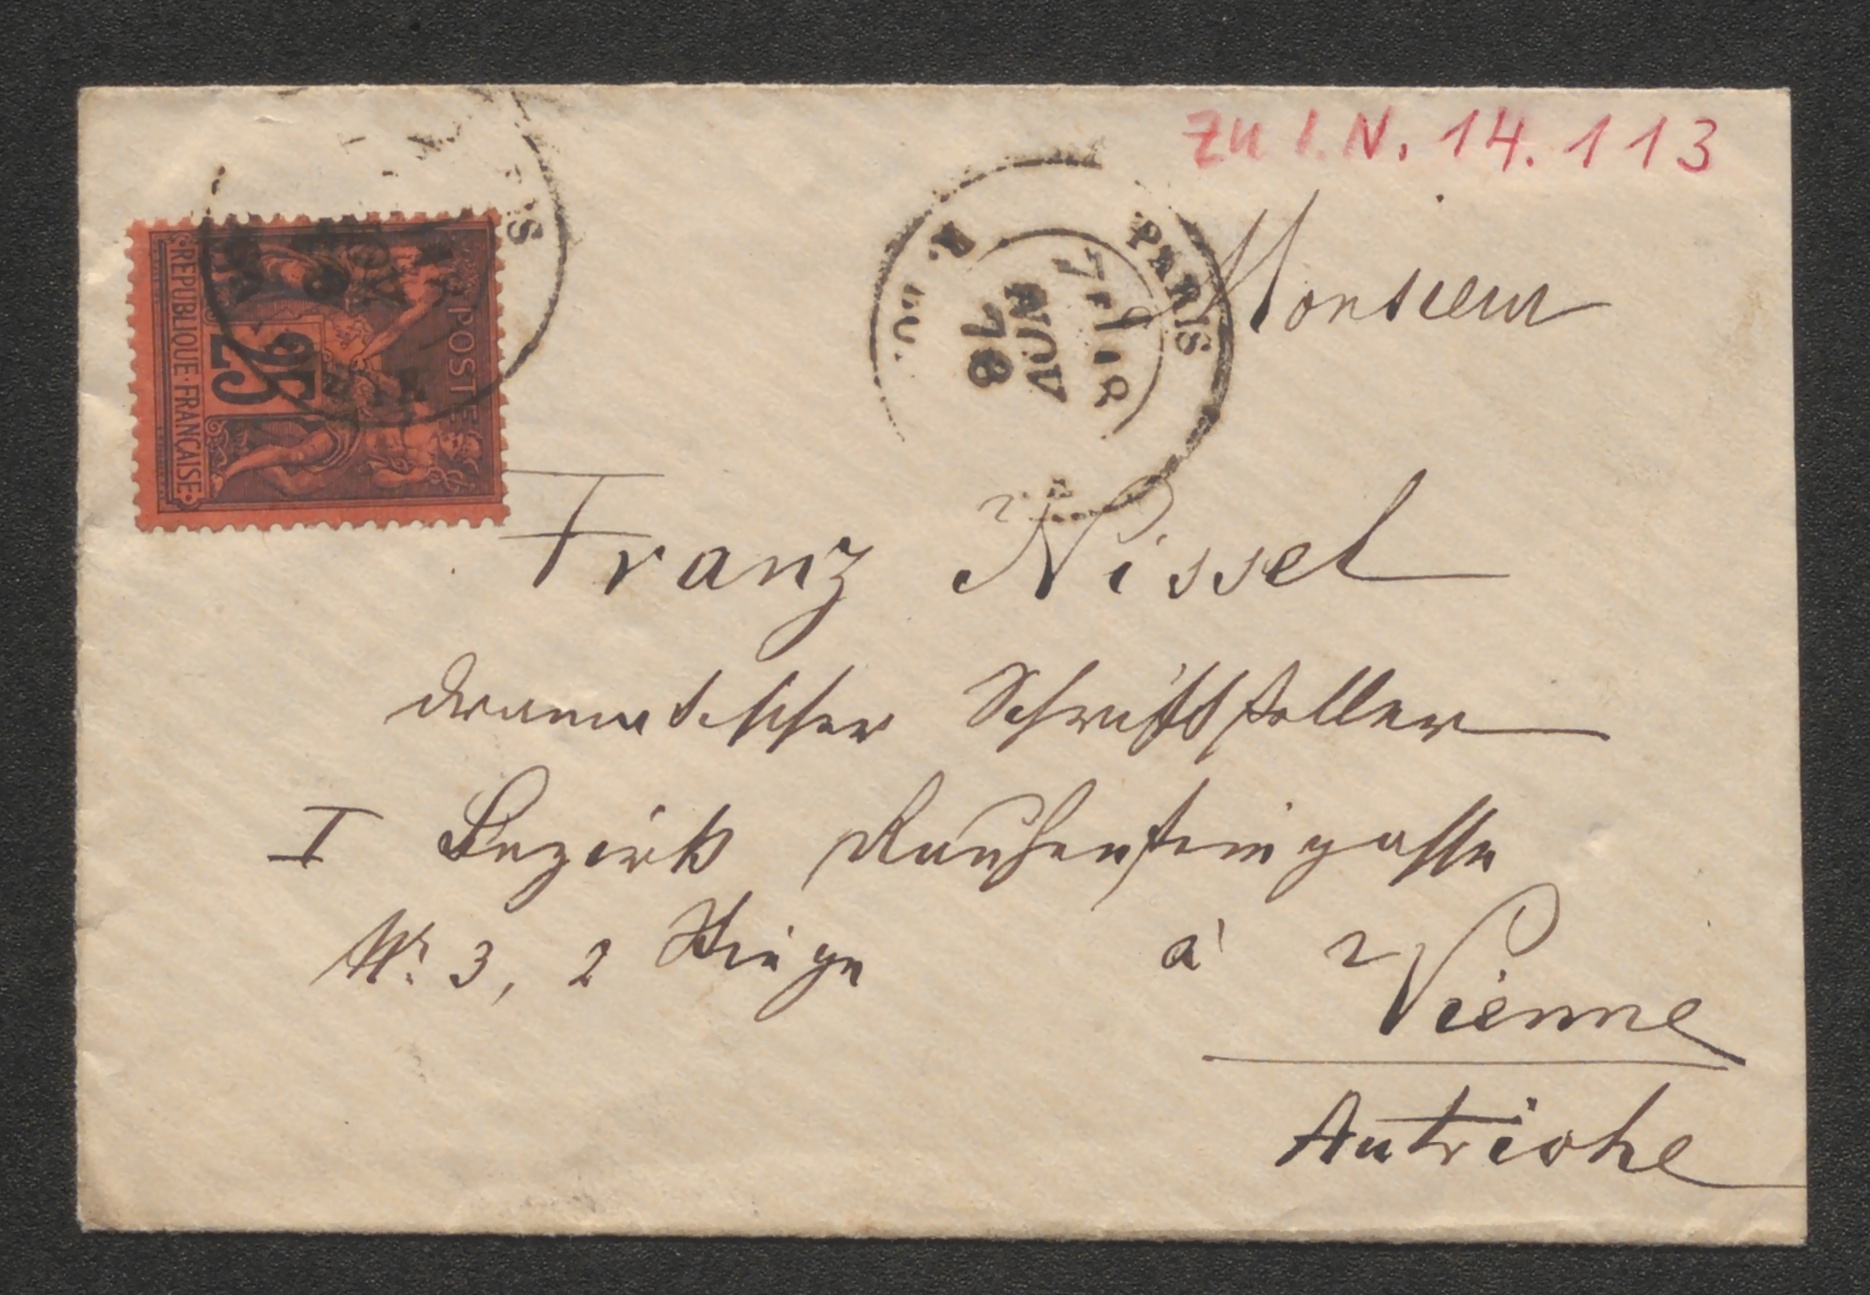 zu I.N. 14.113
POSTE
25
REPUBLIQUE FRANÇAISE
PARIS
R. DU
AOUT
78
Monsieur
Franz Nissel
dramatischer Schriftsteller
I Bezirk Rauhensteingasse
Nr. 3, 2 Stiege à Vienne
Autriche